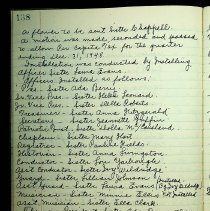 138
a flower to be sent Sister Chappell.
a motion was made, seconded and passed
to allow Per Capita Tax for the quarter
ending Dec. 31, 1948
Installation was conducted by Installing
Officer Sister Fawn Evans.
Officers Installed as follows:
Pres. Sister Ada Berry
Sr. Vice Pres. Sister Helen Leonard
Jr. Vice Pres. Sister Della Roberts
Treasurer - Sister Anna Fitzgerald
Secretary - Sister Jeanette
Patriotic Inst. Sister Shella M.
Chaplain - Sister Mary Hart
Registrar - Sister Pauline Fields
Historian - Sister Anna Livingston
Conductor - Sister Fern Yarbrough
Asst Conductor - Sister Ivy
Guard - Sister Lillian Johnson
Asst Guard - Sister Fawn Evans
Musician - Sister Minnie Ellis
Asst. Musician - Sister Ella Clark